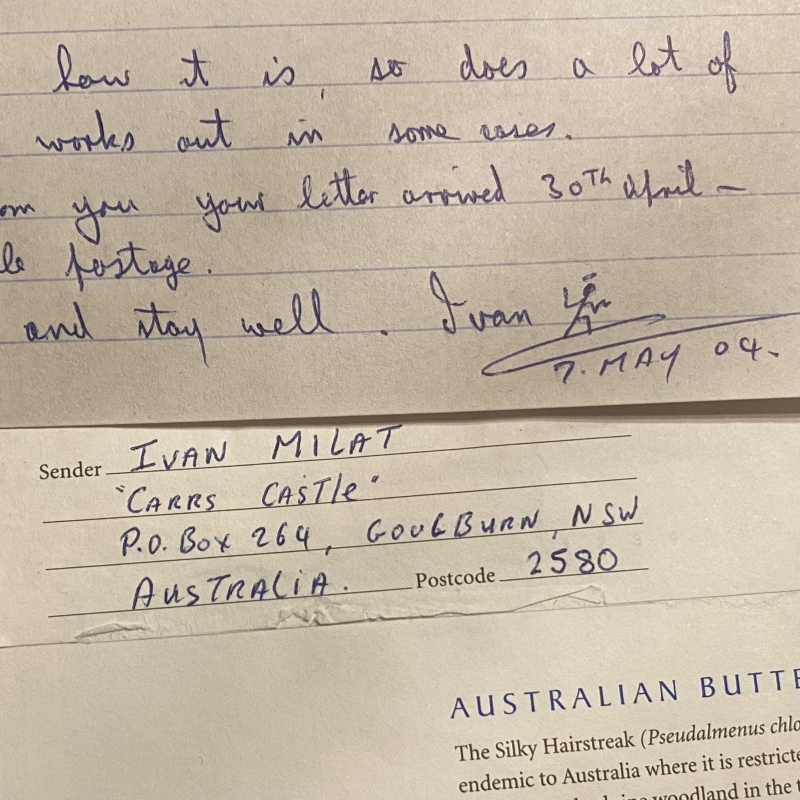 how it is, so does a lot of
works out in some cases.
om you your letter arrived 30TH April –
le postage.
and stay well. Ivan
7. MAY 04.
Sender IVAN MILAT
"CARRS CASTle"
P.O. BOX 264, GOULBURN, NSW
AUSTRALIA. Postcode 2580
AUSTRALIAN BUTTE
The Silky Hairstreak (Pseudalmenus chlo
endemic to Australia where it is restricte
woodland in the t